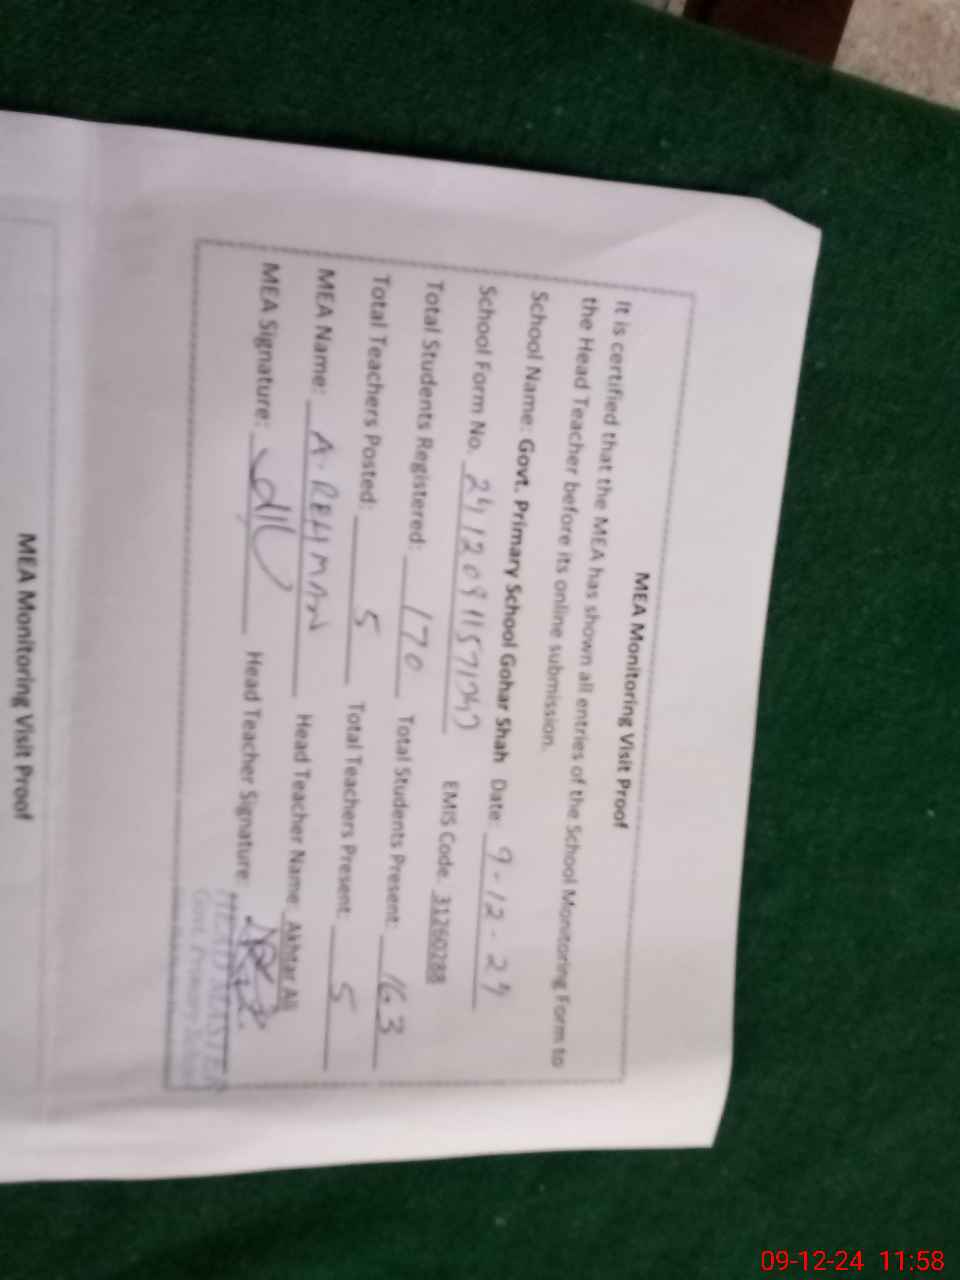 MEA Monitoring Visit Proof
It is certified that the MEA has shown all entries of the School Monitoring Form to
the Head Teacher before its online submission.
School Name: Govt. Primary School Gohar Shah Date: 9-12-24
School Form No. EMIS Code 31260288
Total Students Registered: 170 Total Students Present: 163
Total Teachers Posted: 5 Total Teachers Present: 5
MEA Name: A. REHMAN Head Teacher Name: Akhtar Ali
MEA Signature: Head Teacher Signature:
HEAD MASTER
Govt. Primary School
MEA Monitoring Visit Proof
09-12-24 11:58